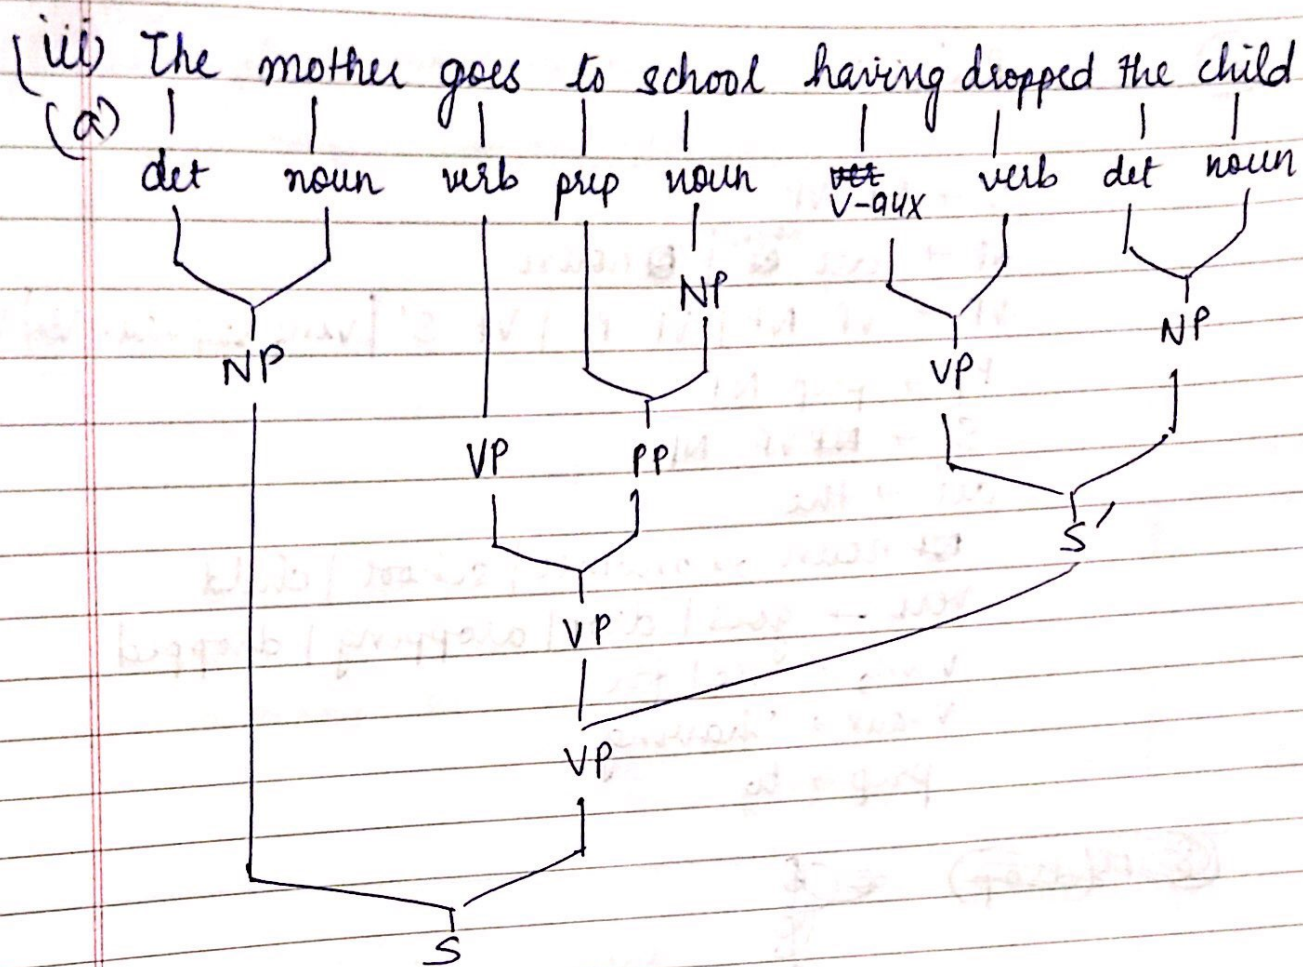 (iii) The mother goes to school having dropped the child
(a)
det noun verb prep noun V-aux verb det noun
NP
NP
NP VP
VP PP
S'
VP
VP
S